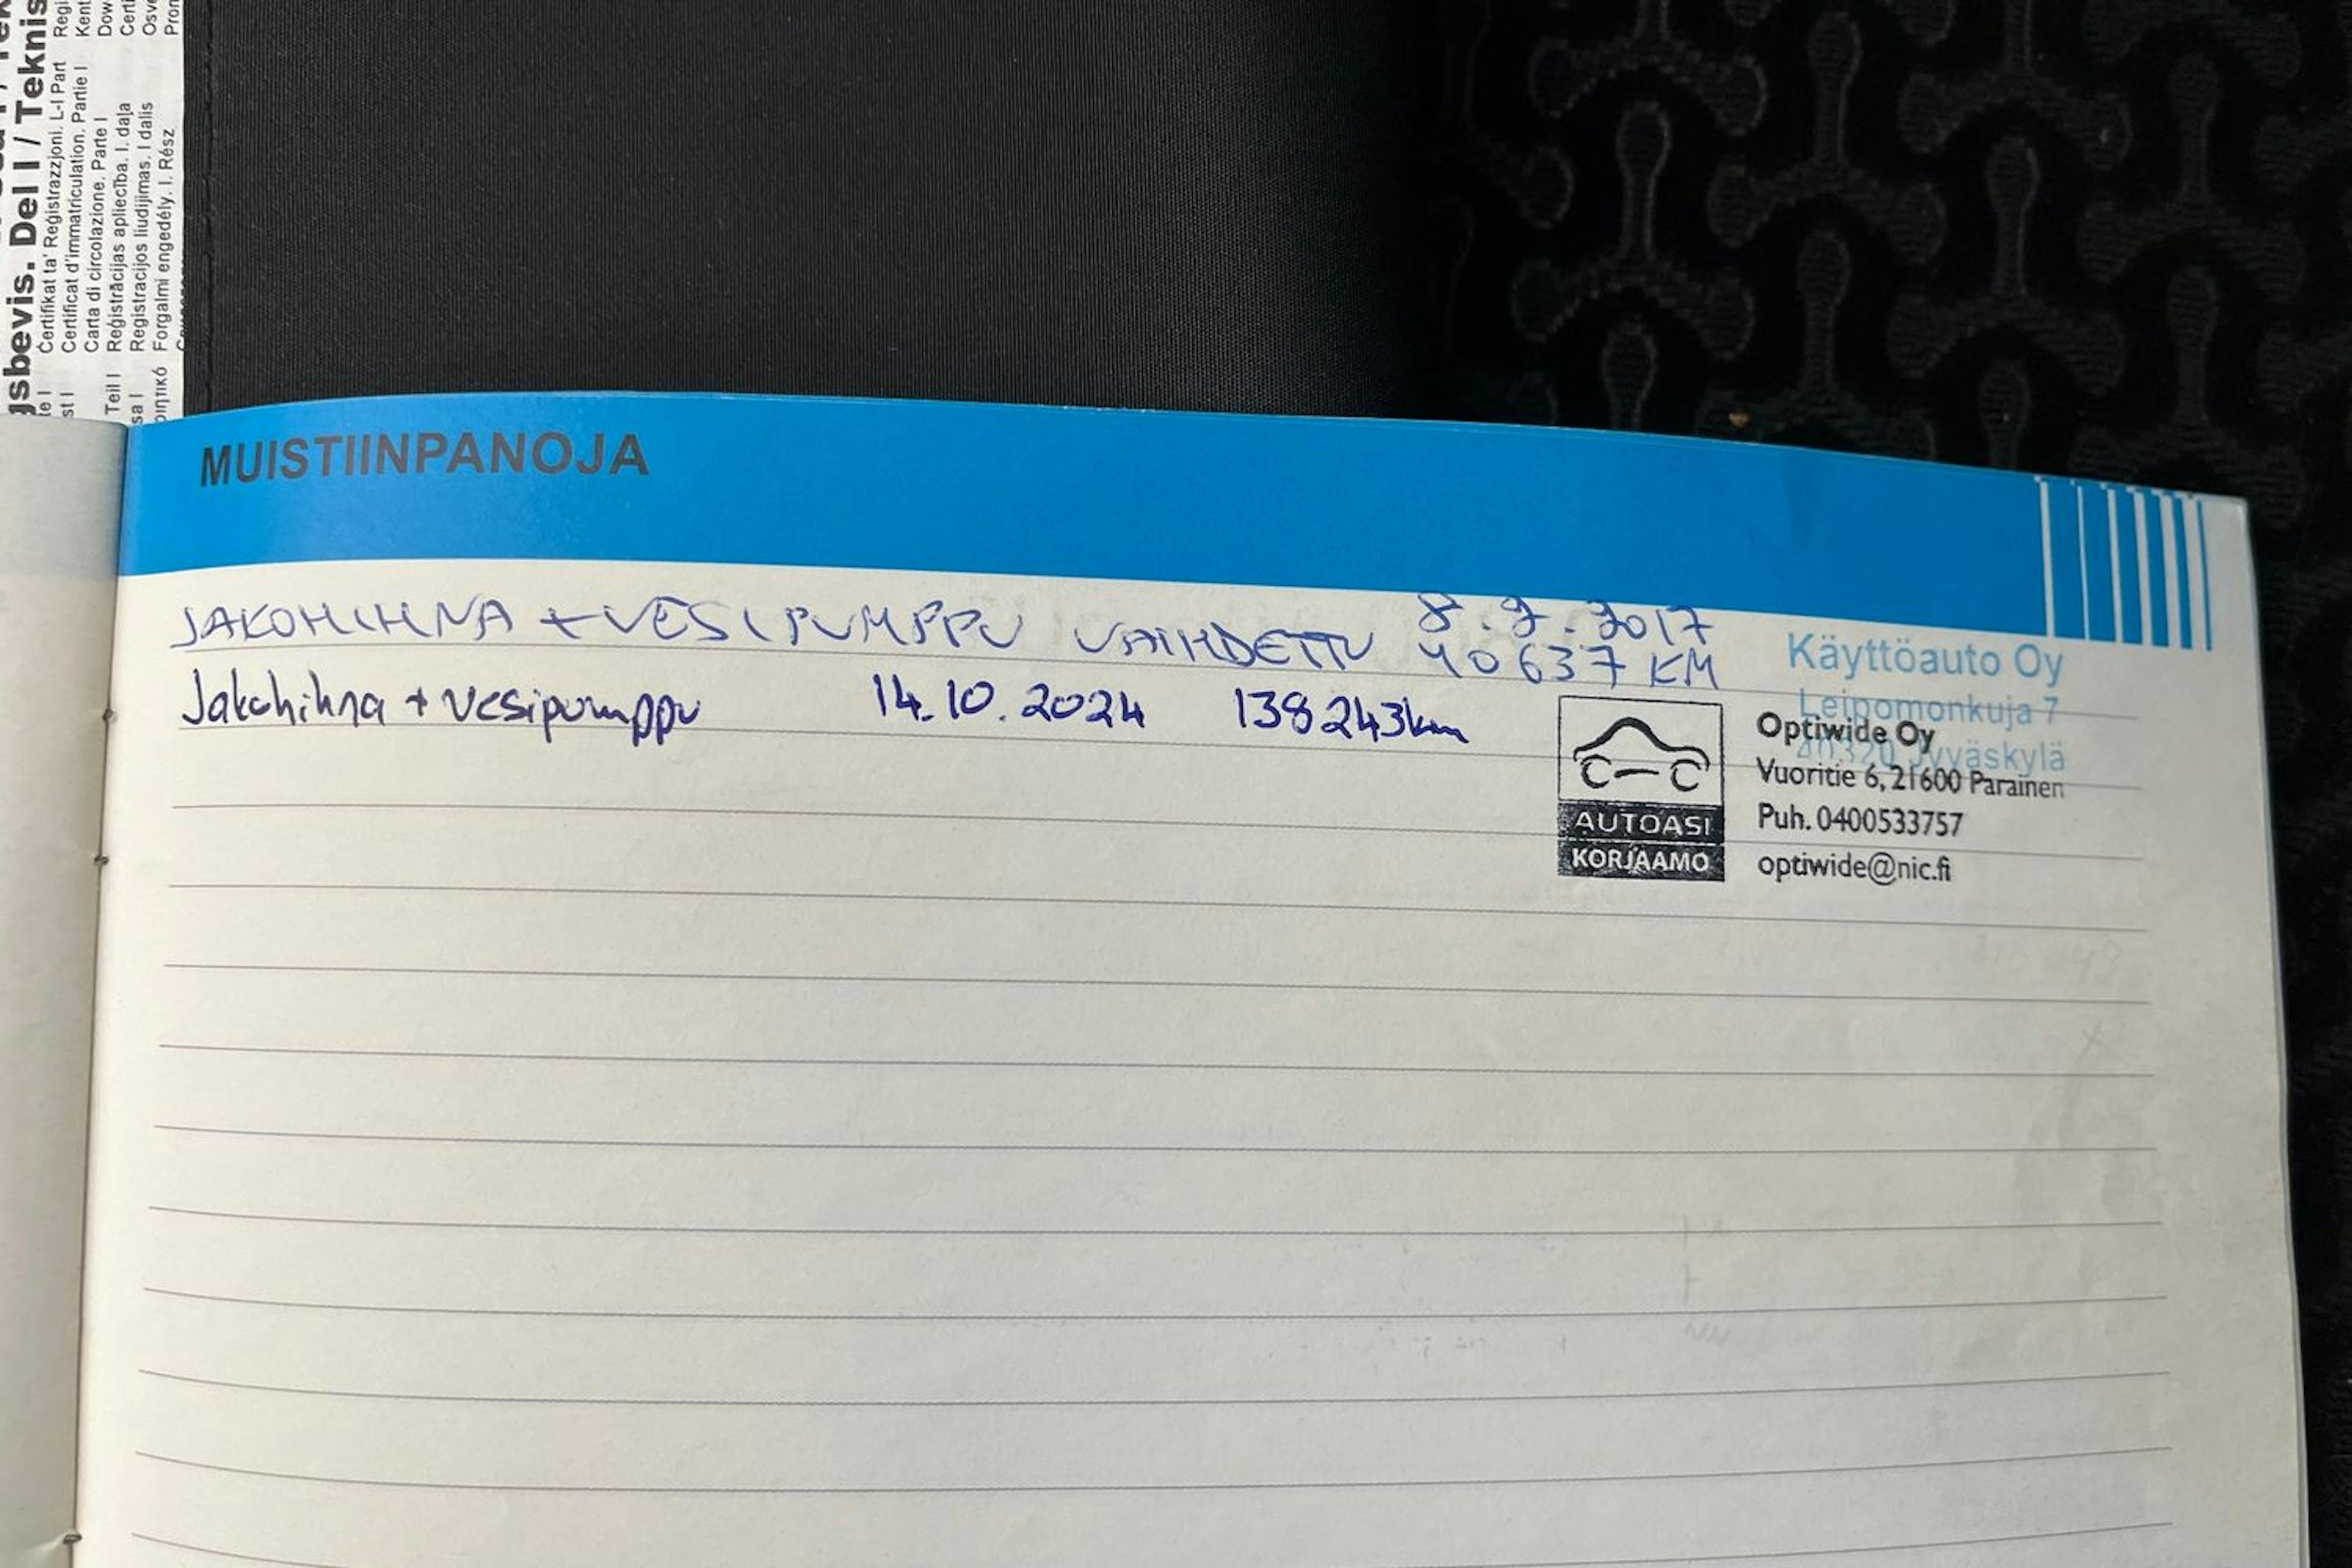 gsbevis. Del I / Teknis
Ċertifikat ta' Reġistrazzjoni. L-I Part
Certificat d'immatriculation. Partie I
Carta di circolazione. Parte I
Reģistrācijas apliecība. I. daļa
Registracijos liudijimas. I dalis
Forgalmi engedély. I. Rész
Teil I
MUISTIINPANOJA
JAKOHIHNA + VESIPUMPPU VAIHDETTU 8.2.2017
40637 KM
Jakohihna + vesipumppu 14.10.2024 138243km
Käyttöauto Oy
Leipomonkuja 7
40320 Jyväskylä
AUTOASI
KORJAAMO
Optiwide Oy
Vuoritie 6, 21600 Parainen
Puh. 0400533757
optiwide@nic.fi